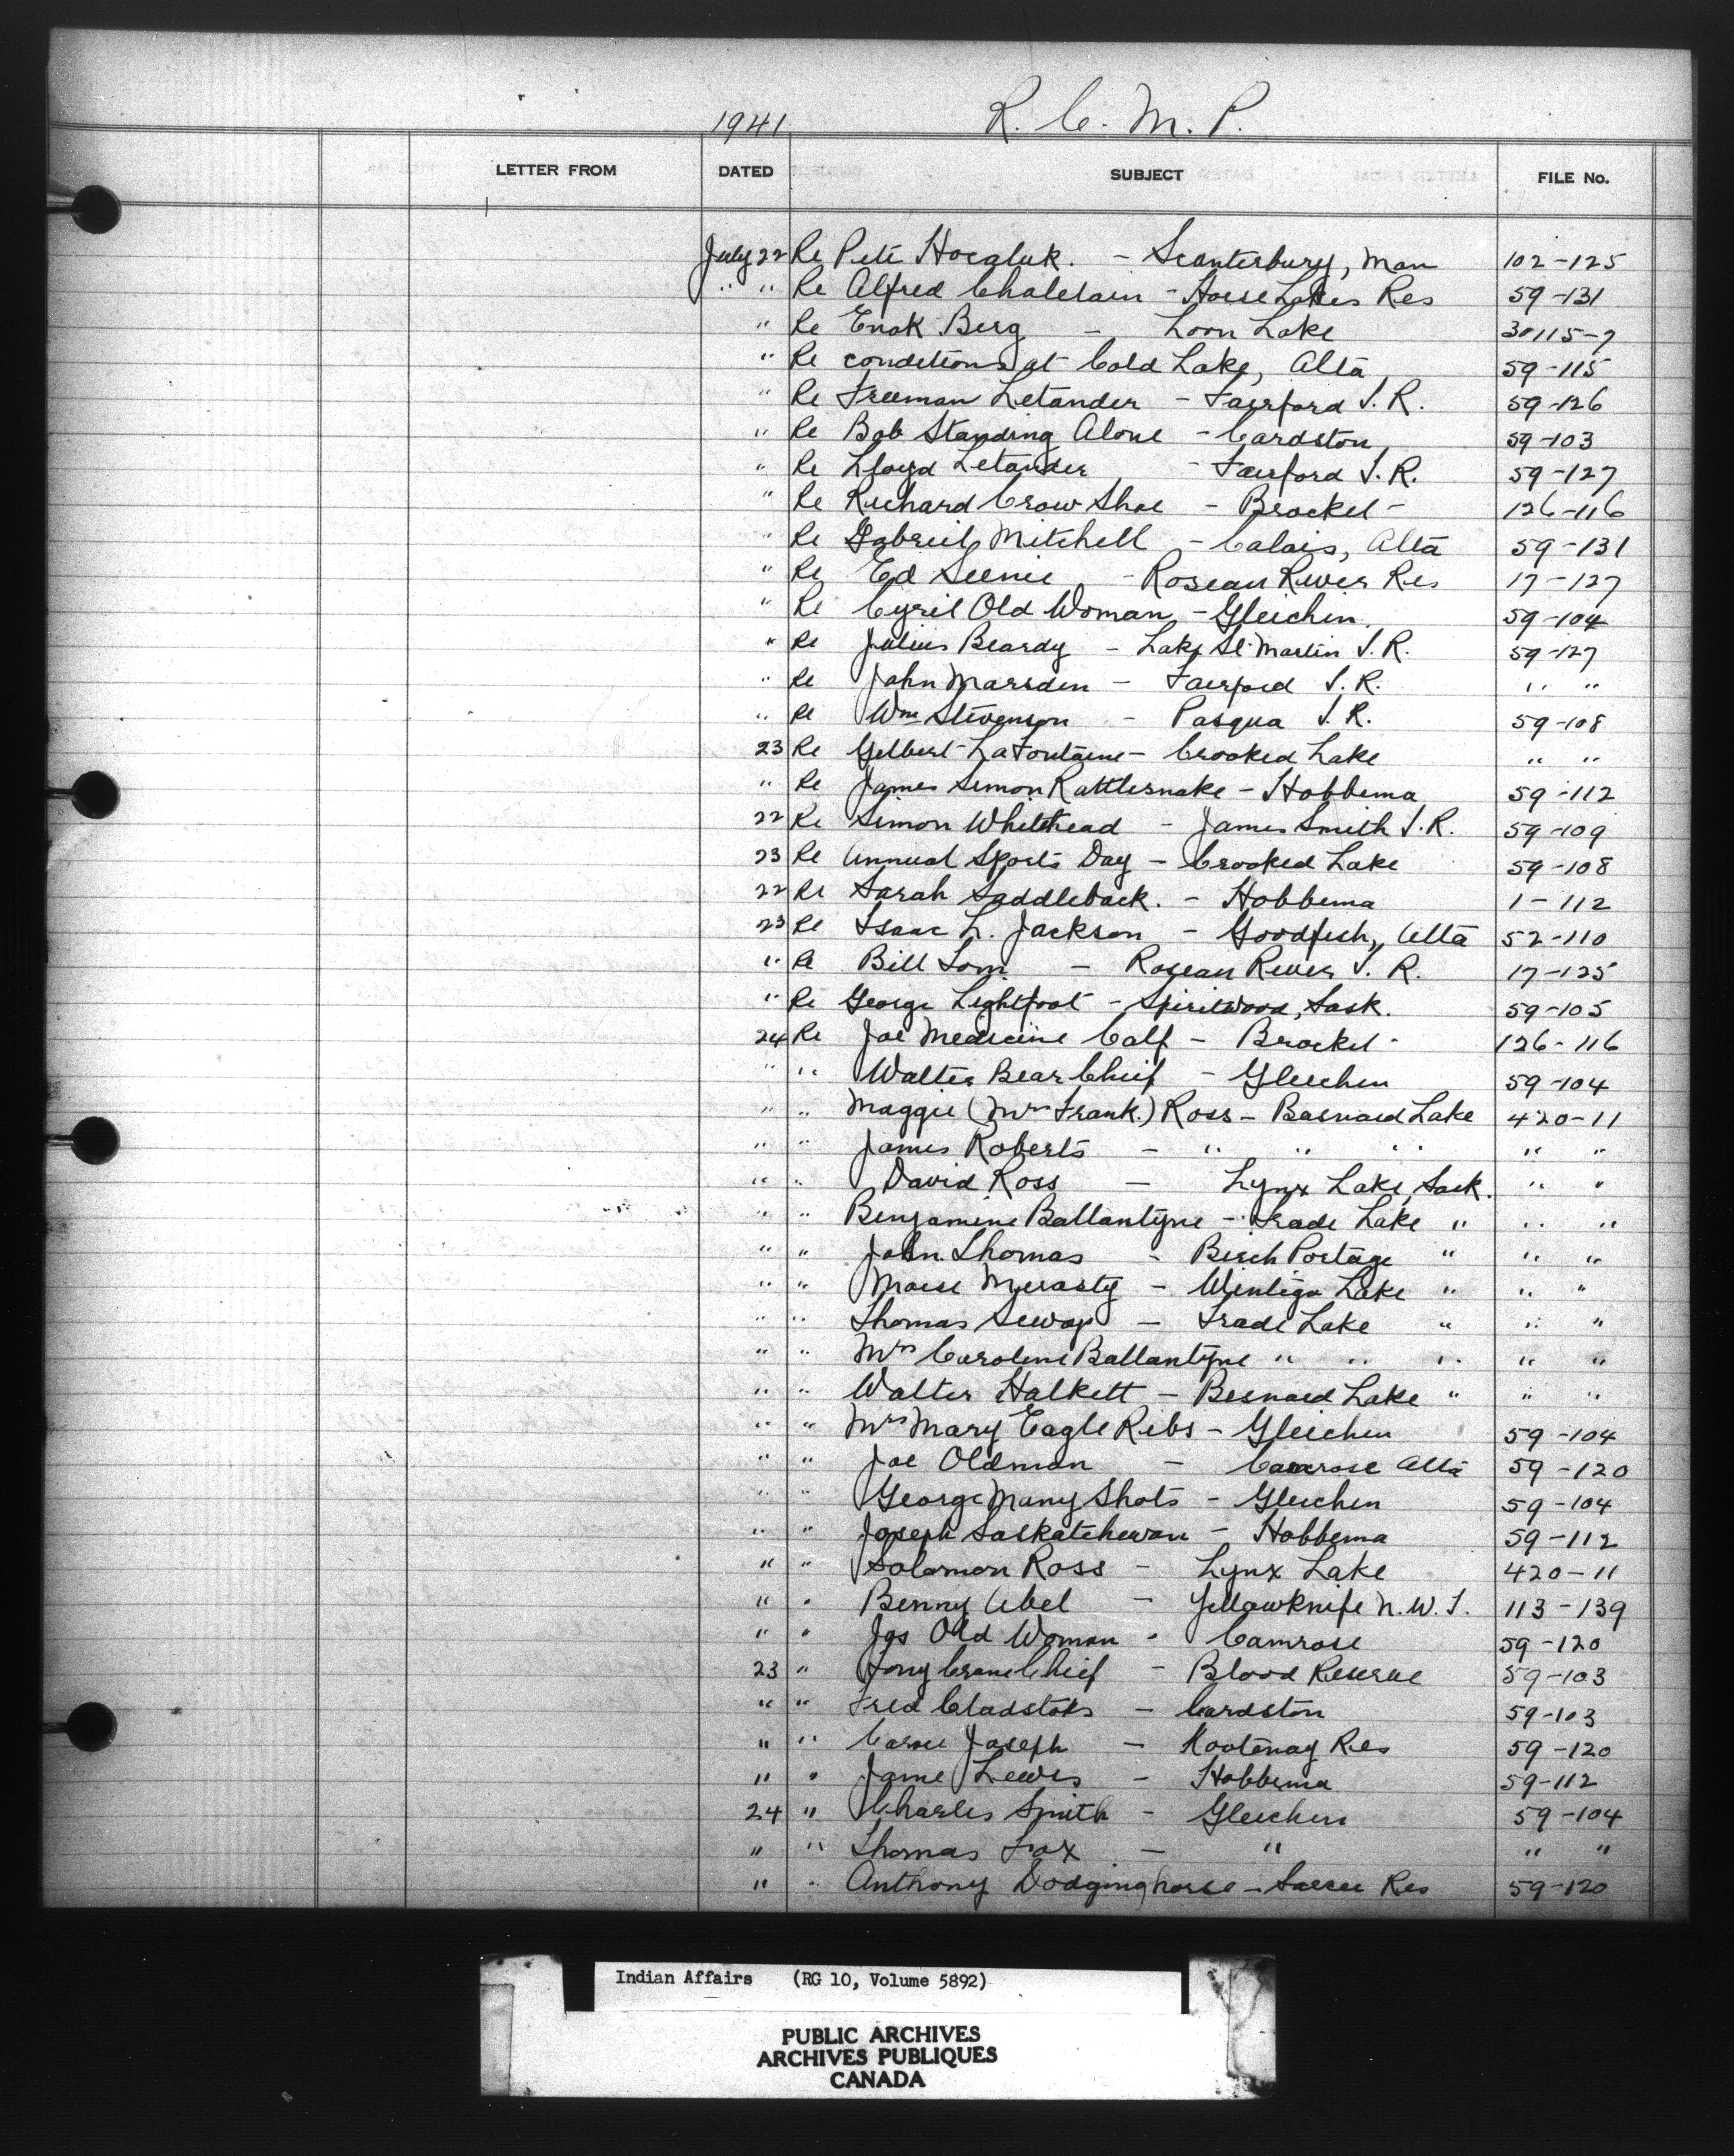 1941 R. C. M. P.
LETTER FROM DATED SUBJECT FILE No.
July 22 Re Pete - Scanterbury, Man 102-125
" " Re Alfred Chalelain - Horse Lakes Res 59-131
" Re Enok Berg - Loon Lake 30115-7
" Re conditions at Cold Lake, Alta 59-115
" Re Freeman Letander - Fairford I.R. 59-126
" Re Bob Standing Alone - Cardston 59-103
" Re Lloyd Letander - Fairford I.R. 59-127
" Re Richard Crow Shoe - Brocket - 126-116
" Re Gabriel Mitchell - Calais, Alta 59-131
" Re Ed - Roseau River Res 17-127
" Re Cyril Old Woman - Gleichen 59-104
" Re Julius Beardy - Lake St Martin I.R. 59-127
" Re John Marsden - Fairford I.R. " "
" Re Wm Stevenson - Pasqua I.R. 59-108
23 Re Gilbert LaFontaine - Crooked Lake " "
" Re James Simon Rattlesnake - Hobbema 59-112
22 Re Simon Whitehead - James Smith I.R. 59-109
23 Re Annual Sports Day - Crooked Lake 59-108
22 Re Sarah Saddleback. - Hobbema 1-112
23 Re Isaac L. Jackson - Goodfish, Alta 52-110
" Re Bill - Roseau River I.R. 17-125
" Re George Lightfoot - Spiritwood, Sask. 59-105
24 Re Joe Medicine Calf - Brocket - 126-116
" " Walter Bear Chief - Gleichen 59-104
" " Maggie (Mrs Frank.) Ross - Besnard Lake 420-11
" " James Roberts - " " " " "
" " David Ross - Lynx Lake, Sask. " "
" " Benjamine Ballantyne - Trade Lake " " "
" " John Thomas - Birch Portage " " "
" " Moise Merasty - Wintego Lake " " "
" " Thomas Sewap - Trade Lake " " "
" " Mrs Caroline Ballantyne " " " " "
" " Walter Halkett - Besnard Lake " " "
" " Mrs Mary Eagle Ribs - Gleichen 59-104
" " Joe Oldman - Camrose Alta 59-120
" " George Many Shots - Gleichen 59-104
" " Joseph Saskatchewan - Hobbema 59-112
" " Solomon Ross - Lynx Lake 420-11
" " Benny Abel - Yellowknife N.W.T. 113-139
" " Jas Old Woman - Camrose 59-120
23 " Tony Crane Chief - Blood Reserve 59-103
" " Fred - Cardston 59-103
" " Joseph - Kootenay Res 59-120
" " Jame Lewis - Hobbema 59-112
24 " Charles Smith - Gleichen 59-104
" " Thomas Fox - " " "
" " Anthony Dodginghorse - Sarcee Res 59-120
Indian Affairs (RG 10, Volume 5892)
PUBLIC ARCHIVES
ARCHIVES PUBLIQUES
CANADA